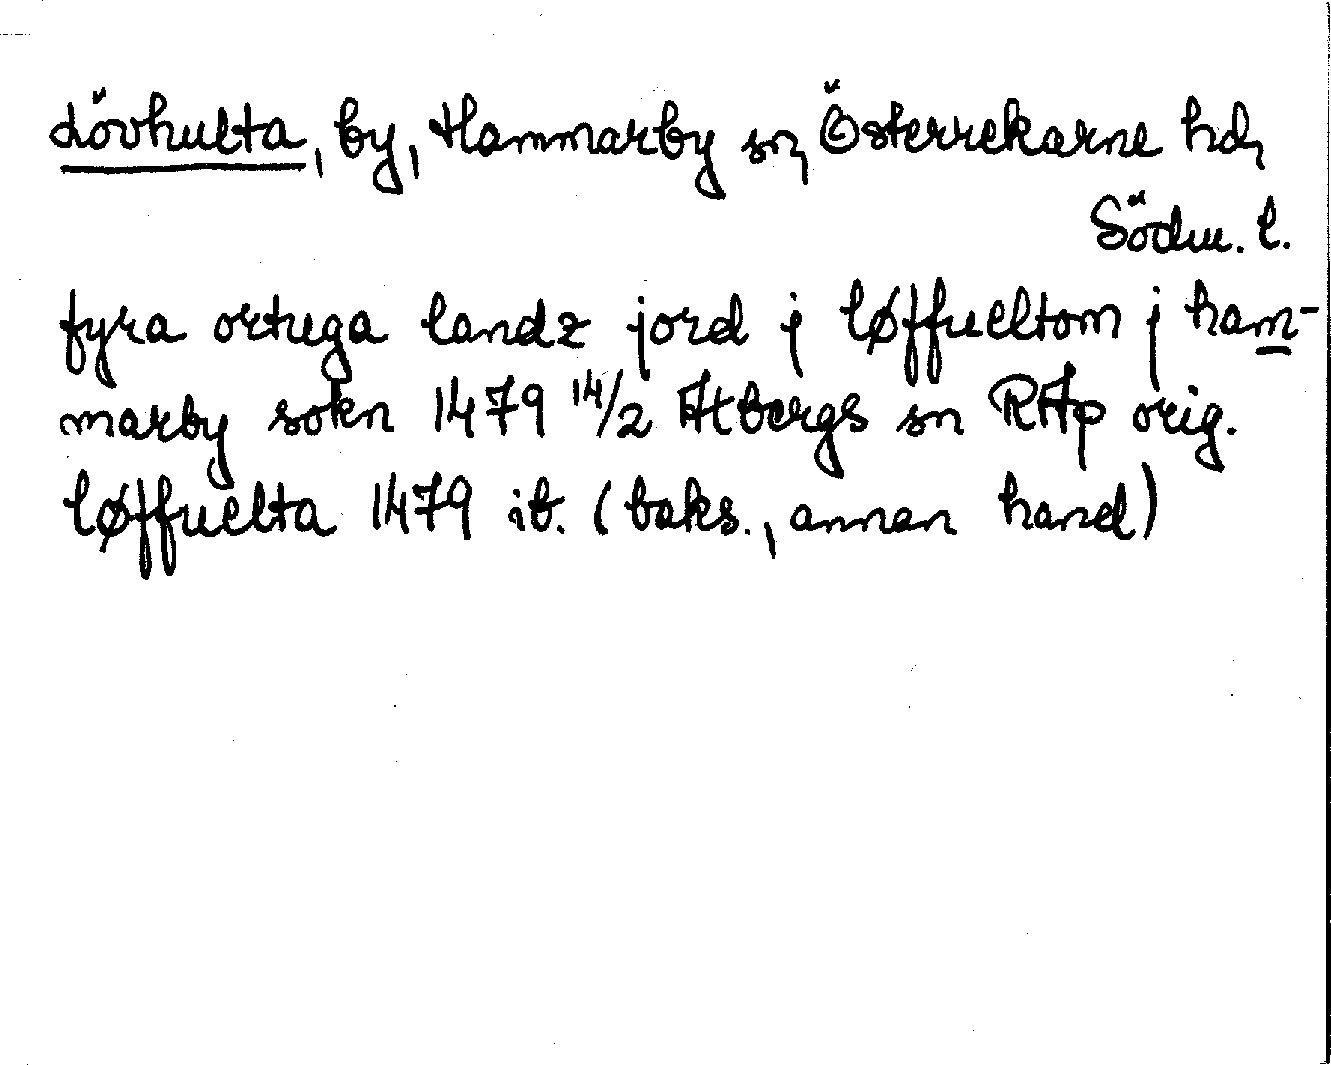 Lövhulta, by, Hammarby sn, Österrekarne hd,
Södm. l.
fyra ortuga landz jord j løffueltom j ham-
marby sokn 1479 14/2 Åkbergs sn RAp orig.
løffuelta 1479 ib. (baks., annan hand)